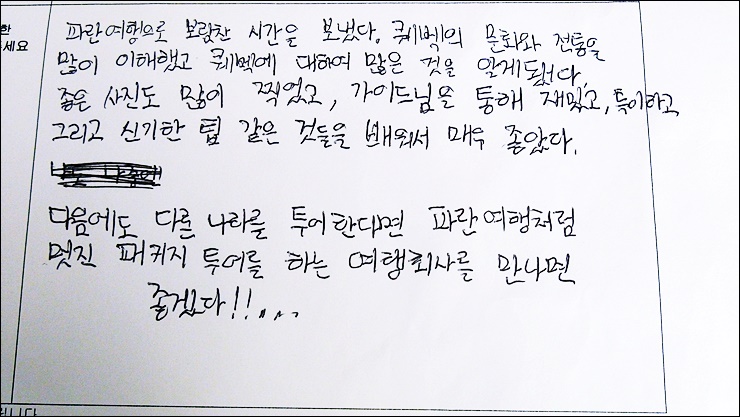 한
세요
파란여행으로 보람찬 시간을 보냈다. 퀘벡의 문화와 전통을
많이 이해했고 퀘벡에 대하여 많은 것을 알게됐다.
좋은 사진도 많이 찍었고, 가이드님을 통해 재밌고, 특이하고
그리고 신기한 팁 같은 것들을 배워서 매우 좋았다.
다음에도 다른 나라를 투어한다면 파란여행처럼
멋진 패키지 투어를 하는 여행회사를 만나면
좋겠다!!....
니다